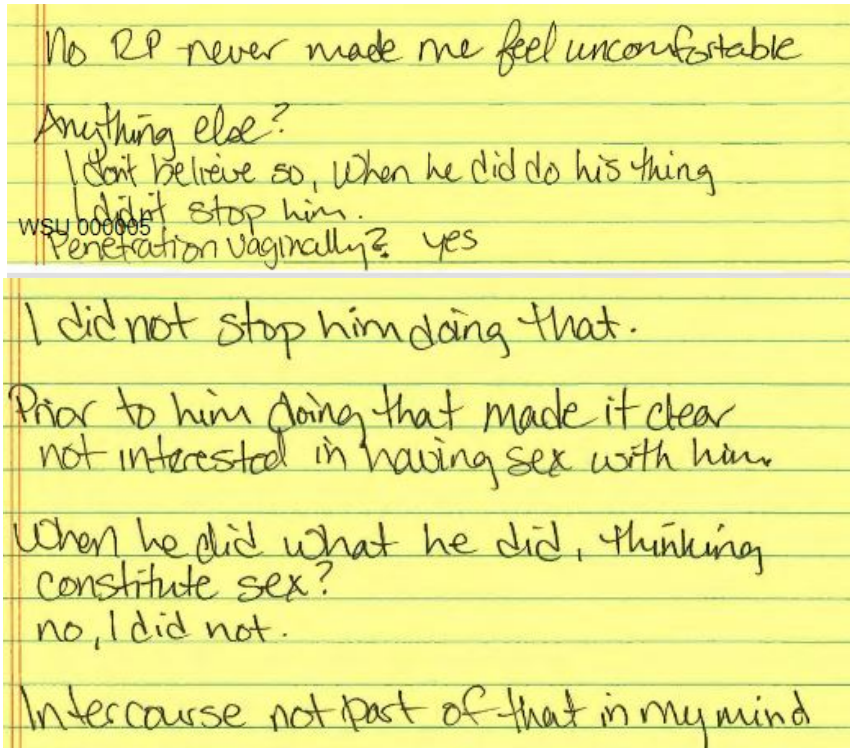 No RP never made me feel uncomfortable
Anything else?
I don't believe so, When he did do his thing
I didn't stop him.
WSU 000005
Penetration vaginally? yes
I did not stop him doing that.
Prior to him doing that made it clear
not interested in having sex with him.
When he did what he did, thinking
constitute sex?
no, I did not.
Intercourse not part of that in my mind